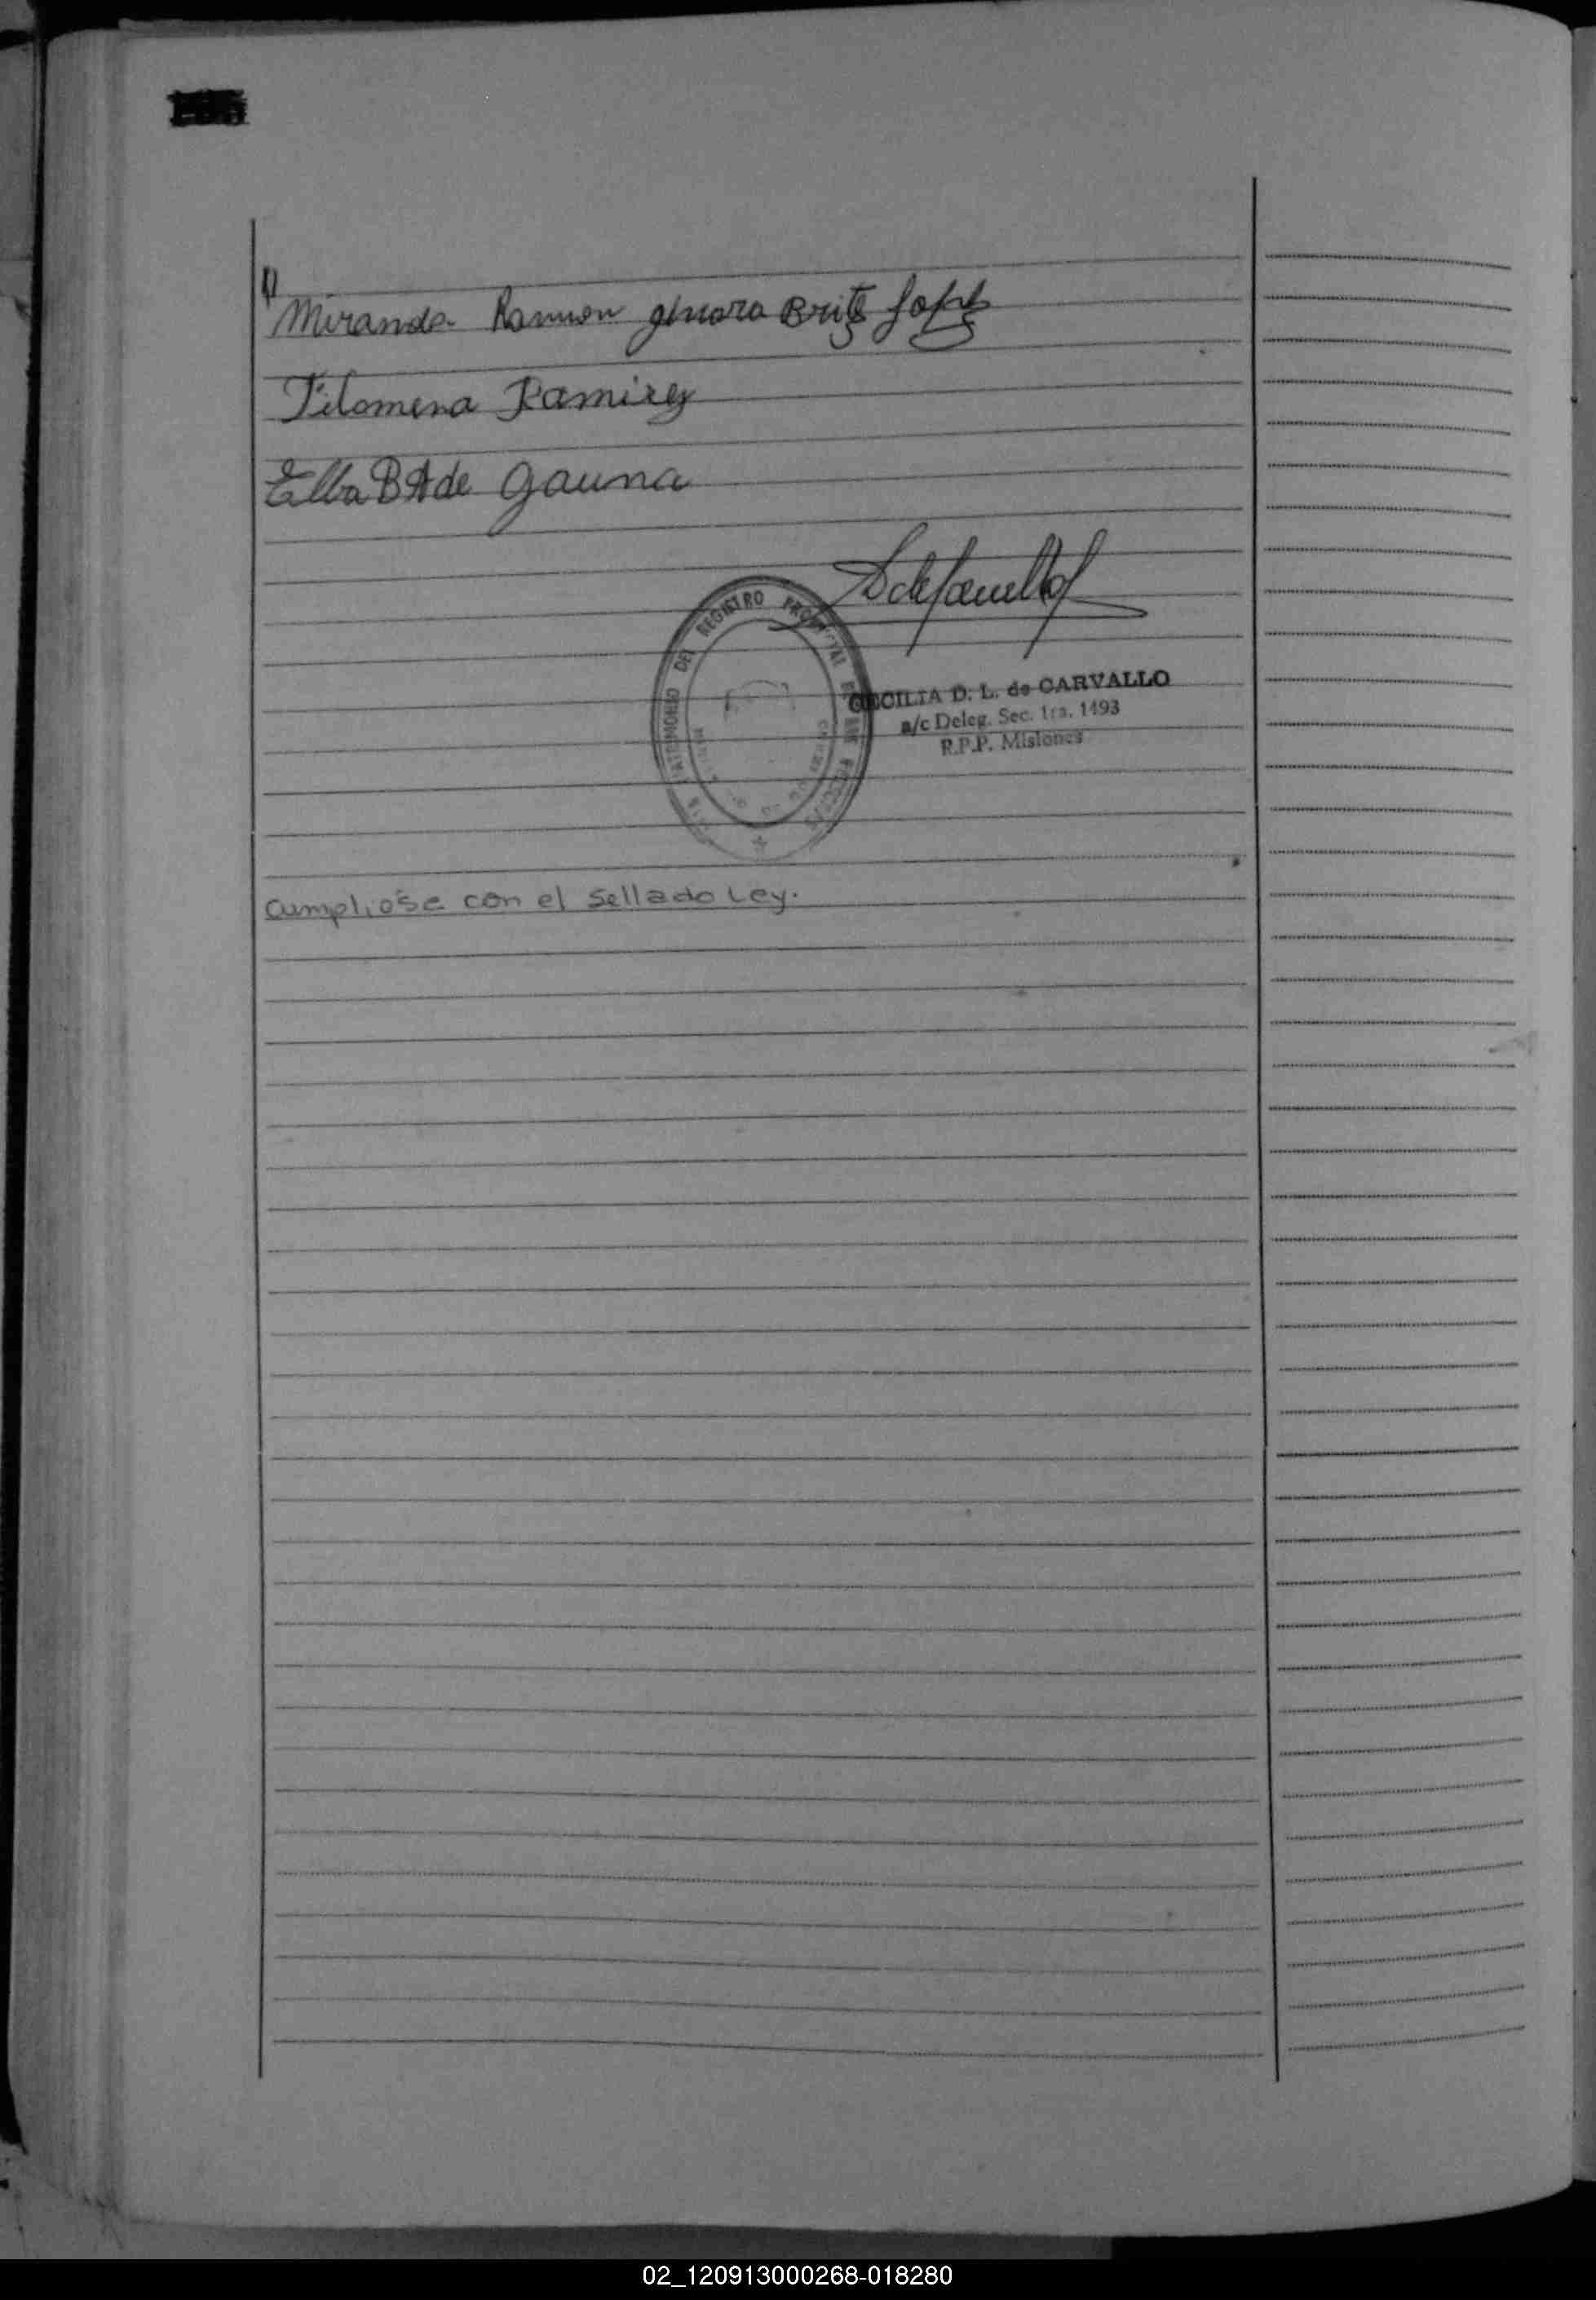 Miranda Ramon genara Britz
Filomena Ramirez
Elba BA de gauna
REGISTRO PROVINCIAL DE LAS PERSONAS
CECILIA D. L. de CARVALLO
a/c Deleg. Sec. 1ra. 1493
R.P.P. Misiones
Cumpliose con el Sellado Ley.
02_120913000268-018280